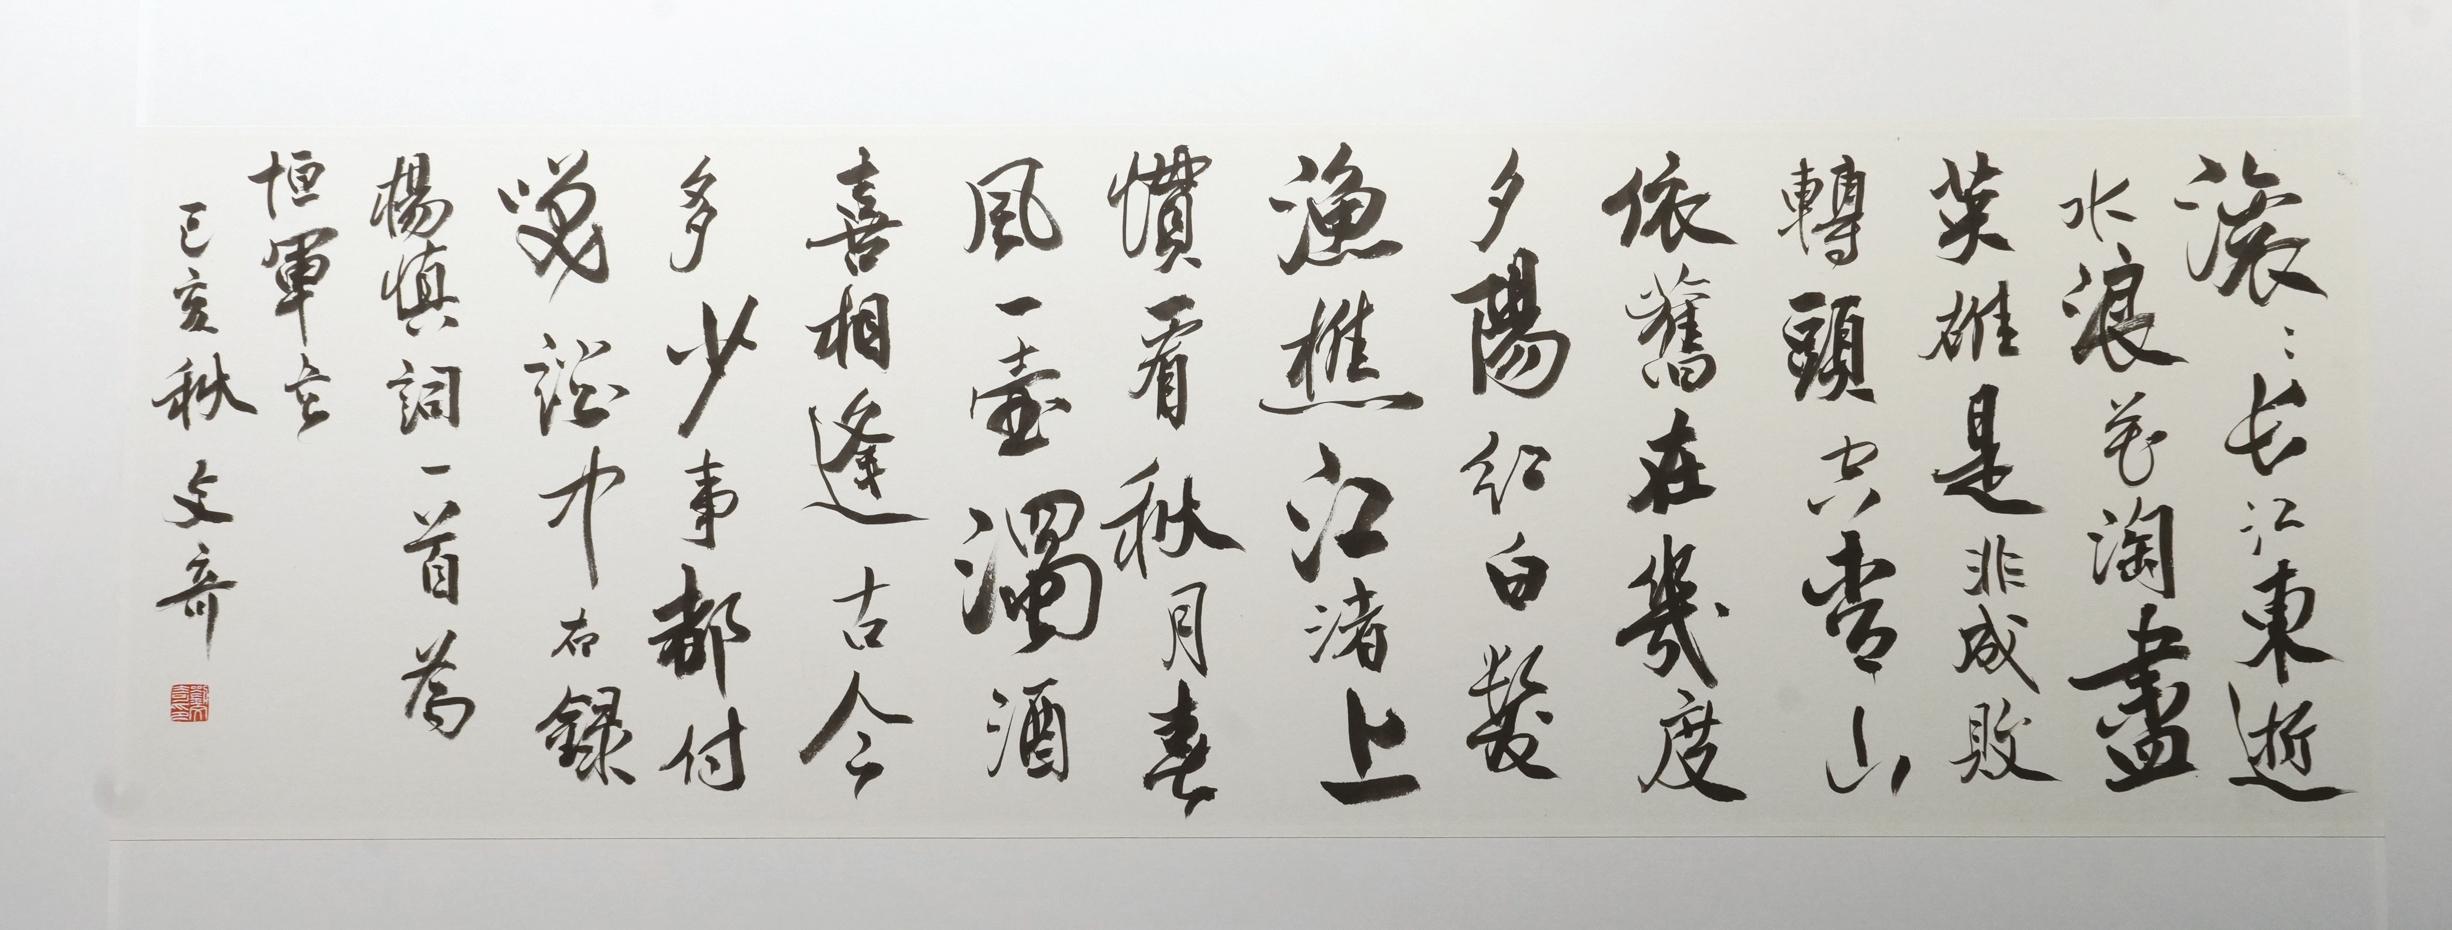 滚〻长江東逝
水浪花淘盡
英雄是非成敗
轉頭空青山
依舊在幾度
夕陽紅白髮
漁樵江渚上
慣看秋月春
風一壺濁酒
喜相逢古今
多少事都付
咲談中右録
楊慎詞一首為
恒軍
己亥秋文奇